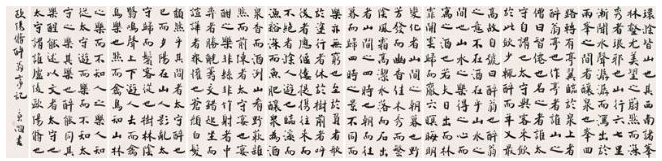 環滁皆山也其西南諸峯
林壑尤美望之蔚然而深
秀者琅邪也山行六七里
漸聞水聲潺潺而瀉出于
兩峯之間者釀泉也峯回
路轉有亭翼然臨於泉上者
醉翁亭也作亭者誰山之
僧曰智僊也名之者誰太
守自謂也太守與客來飲
於此飲少輒醉而年又最
高故自號曰醉翁也醉翁
之意不在酒在乎山水之
間也山水之樂得之心而
寓之酒也若夫日出而林
霏開雲歸而巖穴暝晦明
變化者山間之朝暮也野
芳發而幽香佳木秀而繁
陰風霜高潔水落而石出
者山間之四時也朝而往
暮而歸四時之景不同而
樂亦無窮也至於負者歌
於塗行者休於樹前者呼
後者應傴僂提攜往來而
不絕者滁人遊也臨溪而
漁溪深而魚肥釀泉為酒
泉香而酒洌山肴野蔌雜
然而前陳者太守宴也宴
酣之樂非絲非竹射者中
弈者勝觥籌交錯起坐而
諠譁者衆賓懽也蒼顏白髮
頹然乎其間者太守醉也
已而夕陽在山人影散亂太
守歸而賓客從也樹林陰
翳鳴聲上下遊人去而禽
鳥樂也然而禽鳥知山林
之樂而不知人之樂人知
從太守遊而樂而不知太
守之樂其樂也醉能同其
樂醒能述以文者太守也
太守謂誰廬陵歐陽修也
歐陽脩醉翁亭記 書